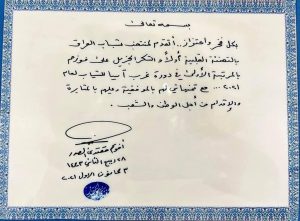 بسمه تعالى
بكل فخر واعتزاز.. أتقدم لمنتخب شباب العراق
بالتهنئة القلبية أولاً والشكر الجزيل على فوزهم
بالمرتبة الأولى في دورة غرب آسيا للشباب لعام
٢٠٢١ ... مع تمنياتي لهم بالموفقية وعليهم بالمثابرة
والإقدام من أجل الوطن والشعب.
أخوكم مقتدى الصدر
٢٨ ربيع الثاني ١٤٤٣
٣ كانون الاول ٢٠٢١